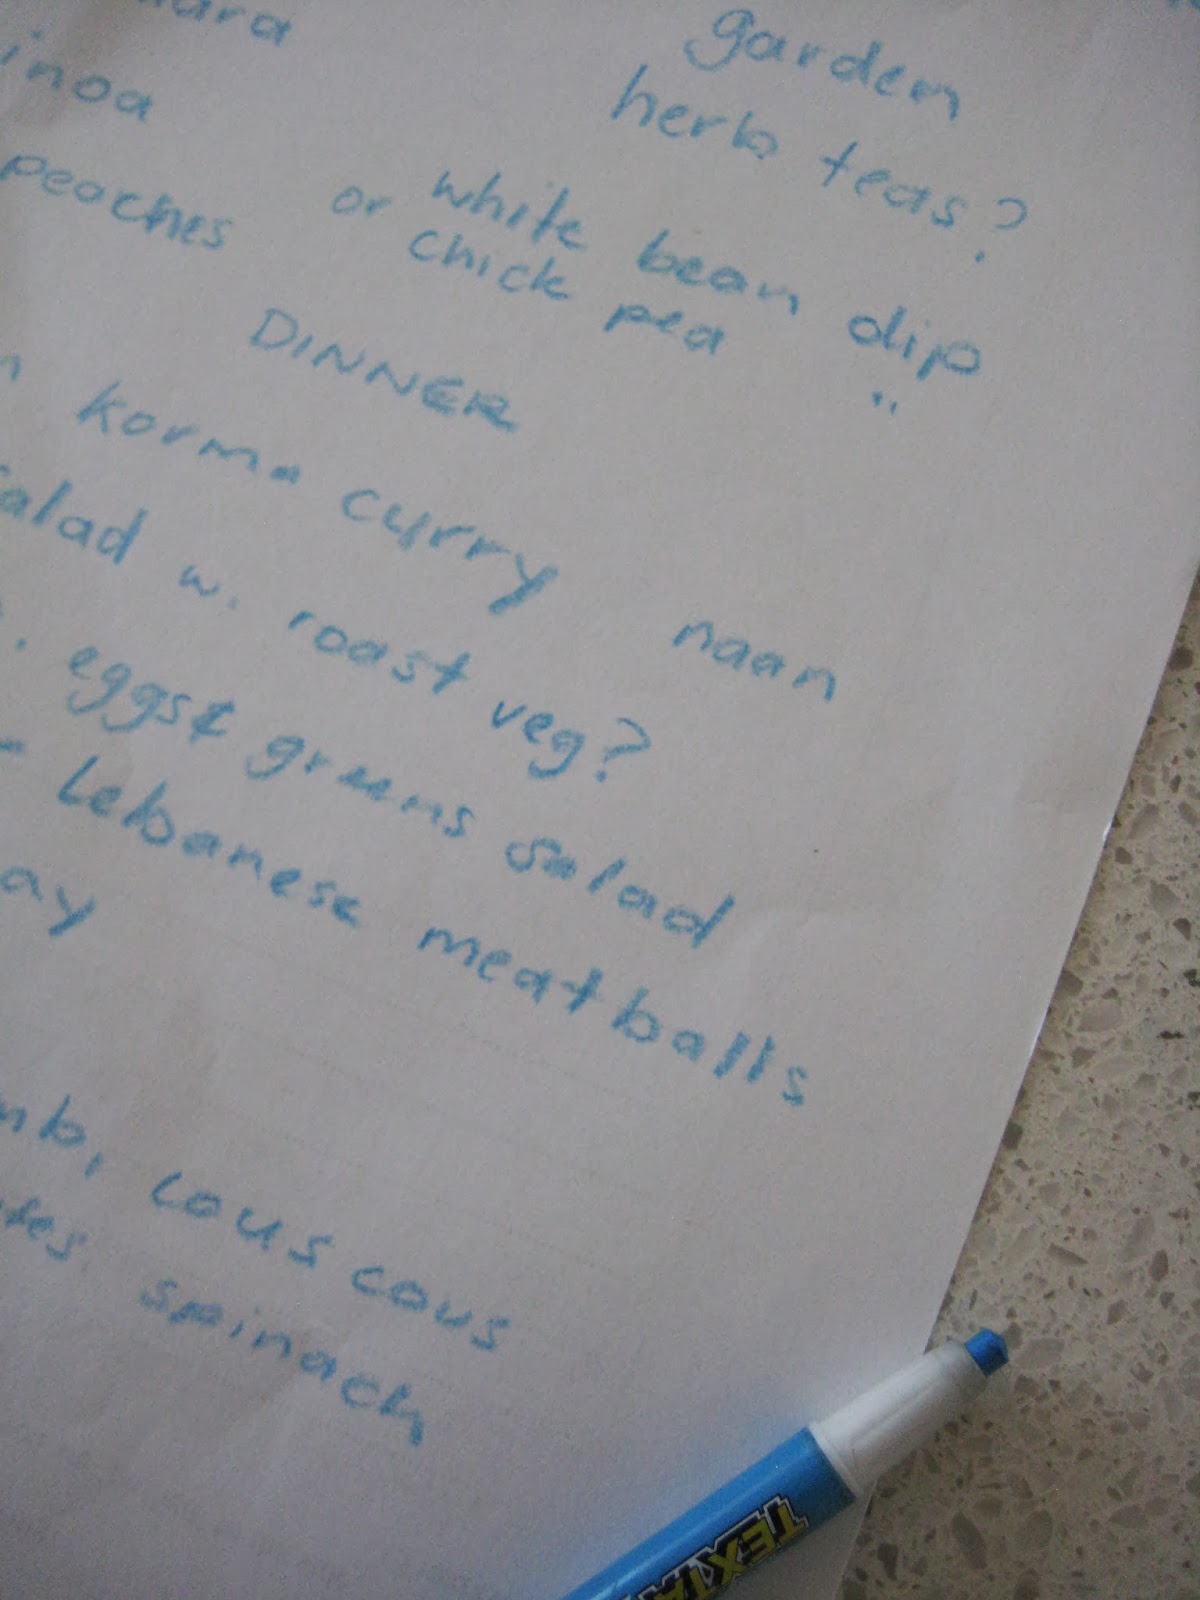 garden
herb teas?
peaches or white bean dip
chick pea "
DINNER
korma curry naan
salad w. roast veg?
eggs & greens salad
- Lebanese meatballs
cous cous
spinach
TEXTA